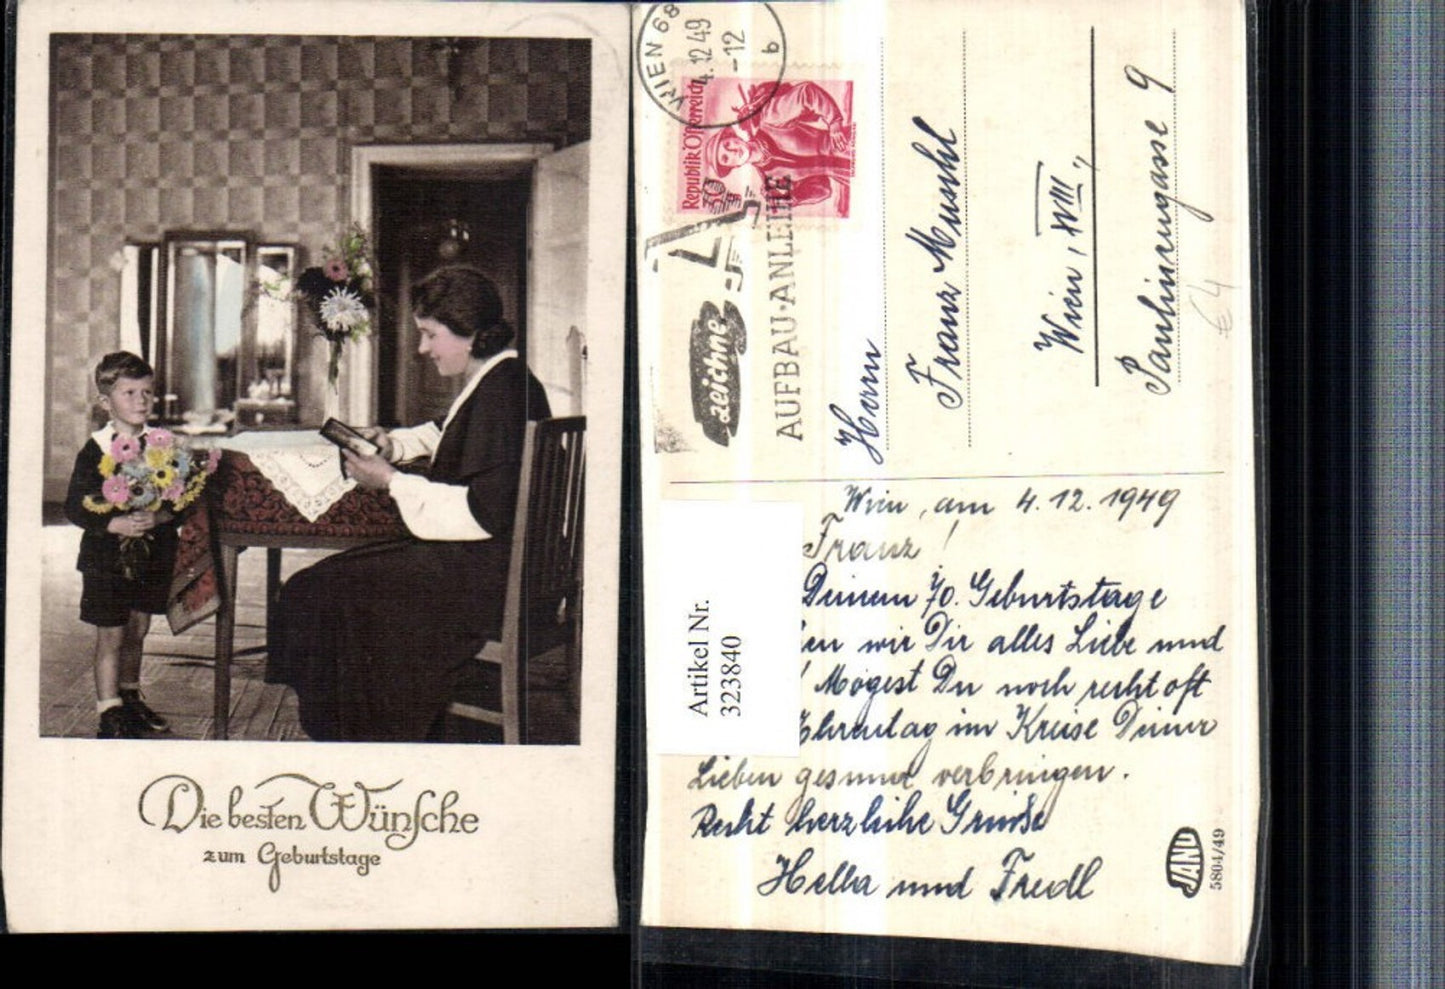 Die besten Wünsche
zum Geburtstage
WIEN 68
4.12.49
-12
b
Republik Österreich
30
zeichne
AUFBAU·ANLEIHE
Herrn
Franz
Wien, XVIII.,
9
€4
Wien, am 4.12.1949
Franz!
Deinem 70. Geburtstage
wir Dir alles Liebe und
! Mögest Du noch recht oft
Ehrentag im Kreise Deiner
Lieben gesund verbringen.
Recht herzliche Grüße
Hella und Fredl
JAND
5804/49
Artikel Nr.
323840